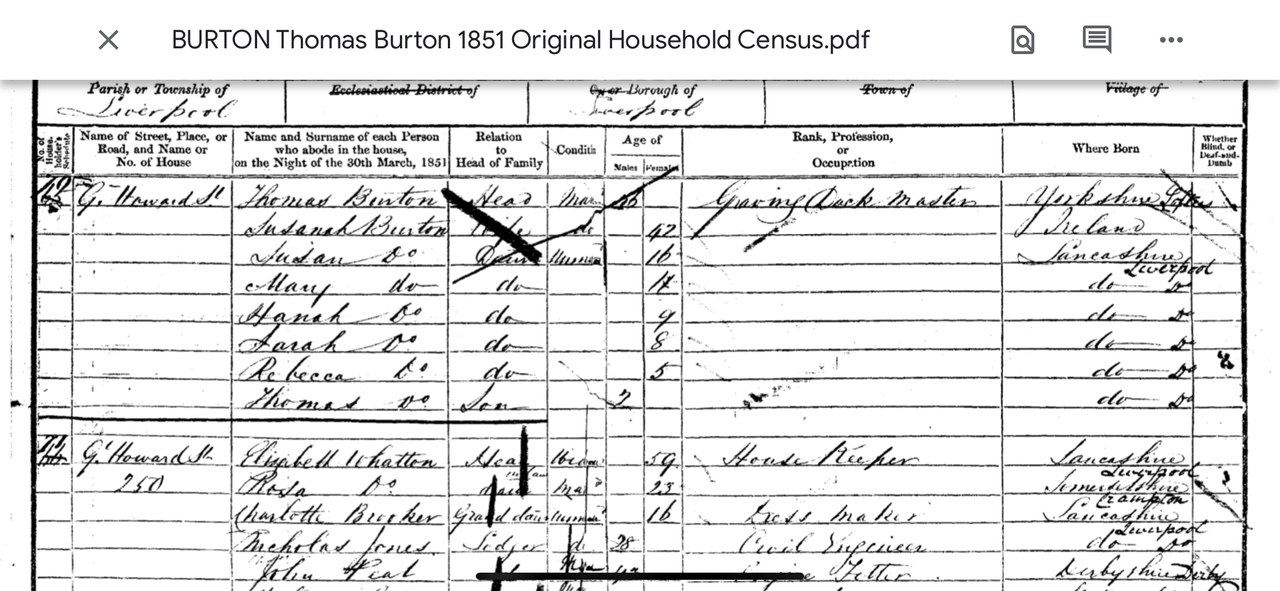 BURTON Thomas Burton 1851 Original Household Census.pdf
Parish or Township of Ecclesiastical District of City or Borough of Town of Village of
Liverpool Liverpool
No. of House-holder's Schedule Name of Street, Place, or Road, and Name or No. of House Name and Surname of each Person who abode in the house, on the Night of the 30th March, 1851 Relation to Head of Family Condition Age of Males Females Rank, Profession, or Occupation Where Born Whether Blind, or Deaf-and-Dumb
Gt Howard St Thomas Burton Head Mar Graving Dock Master Yorkshire
Susanah Burton Wife do 42 Ireland
Susan Do Daur Unmar 16 Lancashire Liverpool
Mary do do 14 do Do
Hanah Do do 9 do Do
Sarah Do do 8 do Do
Rebecca Do do 5 do Do
Thomas Do Son 2 do Do
Gt Howard St Elizabeth Whatton Head Widow 59 House Keeper Lancashire Liverpool
250 Rosa Do daur Mar 23 Somersetshire
Charlotte Brooker Grand daur Unmar 16 Dress Maker Lancashire Liverpool
Nicholas Jones Lodger do 28 Civil Engineer do Do
John Peat Fitter Derbyshire Derby